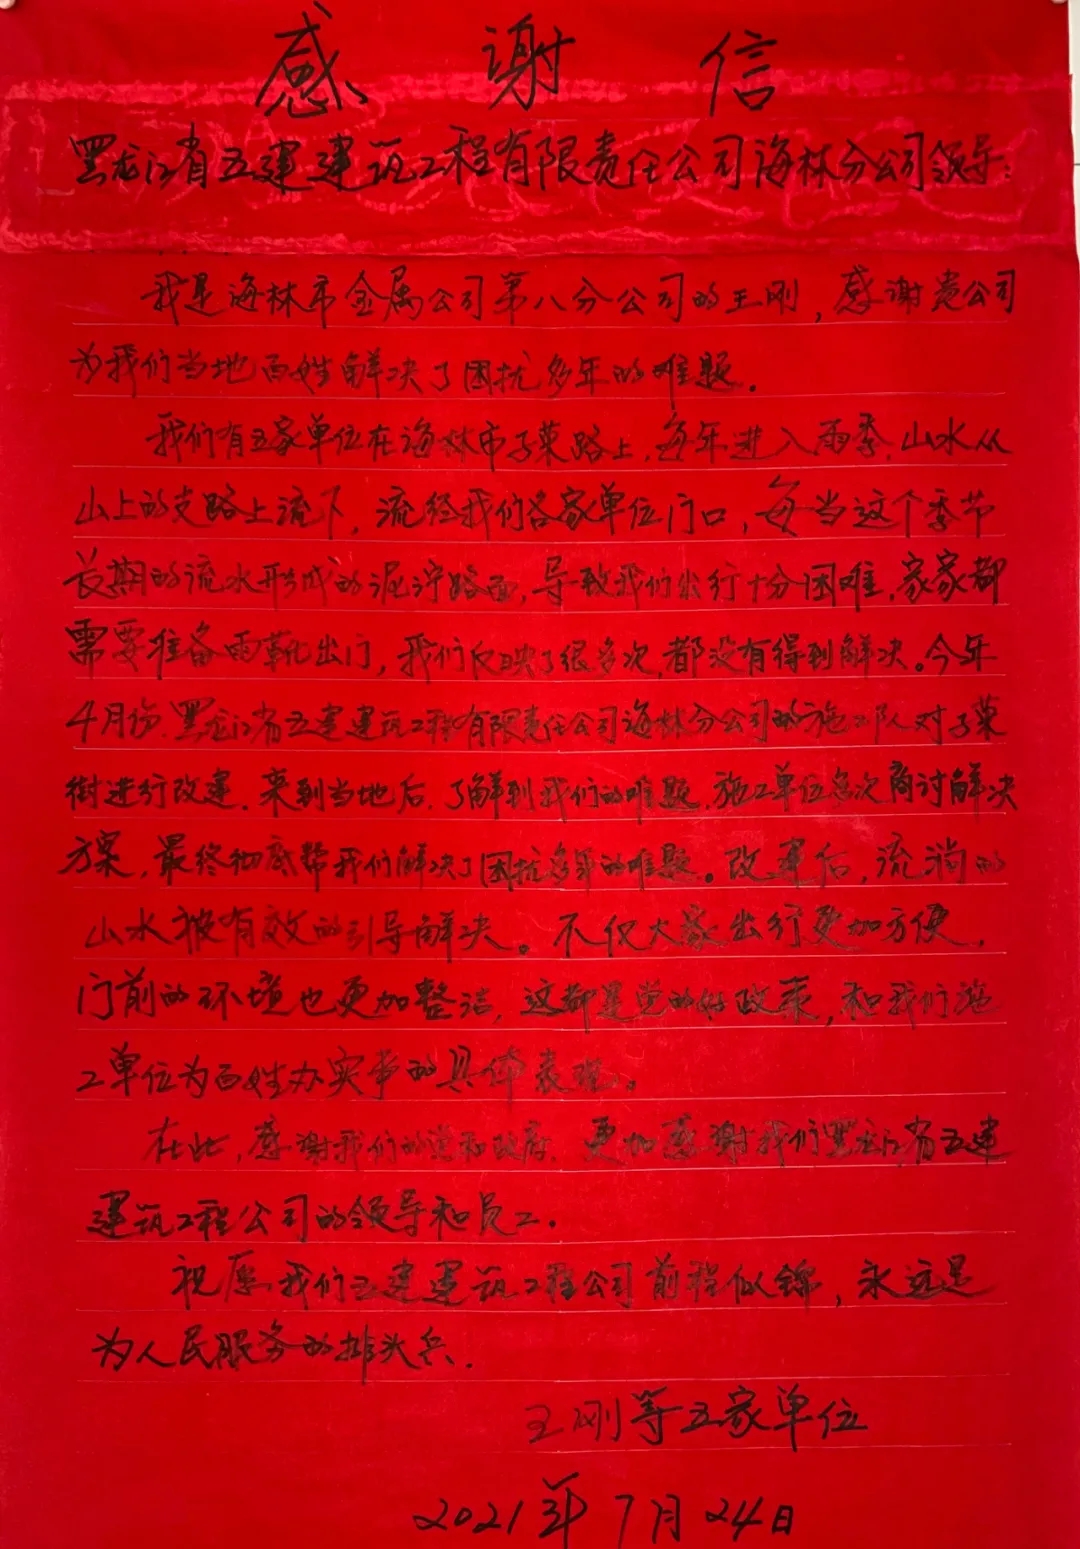 感谢信
黑龙江省五建建筑工程有限责任公司海林分公司领导:
我是海林市金属公司第八分公司的王刚,感谢贵公司
为我们当地百姓解决了困扰多年的难题。
我们有五家单位在海林市子荣路上,每年进入雨季,山水从
山上的支路上流下,流经我们各家单位门口,每当这个季节
长期的流水形成的泥泞路面,导致我们出行十分困难,家家都
需要准备雨靴出门,我们反映了很多次,都没有得到解决。今年
4月份,黑龙江省五建建筑工程有限责任公司海林分公司的施工队对子荣
街进行改建,来到当地后,了解到我们的难题,施工单位多次商讨解决
方案,最终彻底帮我们解决了困扰多年的难题。改建后,流淌的
山水被有效的引导解决。不仅大家出行更加方便,
门前的环境也更加整洁,这都是党的好政策,和我们施
工单位为百姓办实事的具体表现。
在此,感谢我们的党和政府,更加感谢我们黑龙江省五建
建筑工程公司的领导和员工。
祝愿我们五建建筑工程公司前程似锦,永远是
为人民服务的排头兵。
王刚等五家单位
2021年7月24日